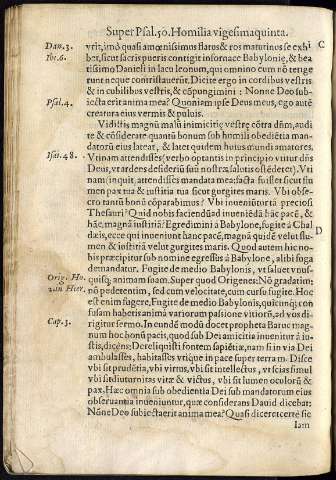 Super Psal. 50. Homilia vigesimaquinta.
Dan. 3.
Ibi. 6.
vrit, imò quasi amœnissimus flatus & ros matutinus se exhi C
bet, sicut sacris pueris contigit in fornace Babyloniæ, & bea
tissimo Danieli in lacu leonum, qui omnino eum nõ tetige
runt neque contristauerunt. Dicite ergo in cordibus vestris
& in cubilibus vestris, & cõpungimini : Nonne Deo sub-
Psal. 4.
iecta erit anima mea? Quoniam ipse Deus meus, ego autẽ
creatura eius vermis & puluis.
Vidistis magnũ malũ inimicitię vestrę cõtra dñm, audi
te & cõsiderate quantũ bonum sub homili obediẽtia man-
datorũ eius lateat, & latet quidem huius mundi amatores.
Psal. 48.
Vtinam attendisses (verbo optantis in principio vtitur dñs
Deus, vt ardẽs desideriũ suũ nostræ salutis ostẽderet). Vti
nam, inquit, attendisses mandata mea: facta fuisset sicut flu
men pax tua & iustitia tua sicut gurgites maris. Vbi obse-
cro tantũ bonũ cõparabimus? Vbi inueniũtur tã preciosi
Thesauri? Quid nobis faciendũ ad inueniẽdã hãc pacẽ, &
hãc, magnã iustitiã? Egredimini à Babylone, fugite à Chal D
dæis, ecce qui inuenietis hanc pacẽ, magnã quidẽ velut flu-
men & iustitiã velut gurgites maris. Quod autem hic no-
bis præcipitur sub nomine egressus à Babylone, alibi fuga
demandatur. Fugite de medio Babylonis, vt saluet vnus-
Orig. Ho.
2. in Hier.
quisq; animam suam. Super quod Origenes: Nõ gradatim;
nõ pedetentim, sed cum velocitate, cum cursu fugite. Hoc
est enim fugere, Fugite de medio Babylonis, quicunq; con-
fusam habetis animã variorum passione vitiorũ, ad vos di-
rigitur sermo. In eundẽ modũ docet propheta Baruc mag-
Cap. 3.
num hoc bonũ pacis, quod sub Dei amicitia inuenitur à iu-
stis, dicẽs: Dereliquisti fontem sapiẽtiæ, nam si in via Dei
ambulasses, habitasses vtique in pace super terram. Disce
vbi sit prudẽtia, vbi virtus, vbi sit intellectus, vt scias simul
vbi sit diuturnitas vitæ & victus, vbi sit lumen oculorũ &
pax. Hæc omnia sub obedientia Dei sub mandatorum eius
obseruantia inueniuntur, quæ considerans Dauid dicebat:
Nõne Deo subiecta erit anima mea? Quasi diceret certe sic
Iam